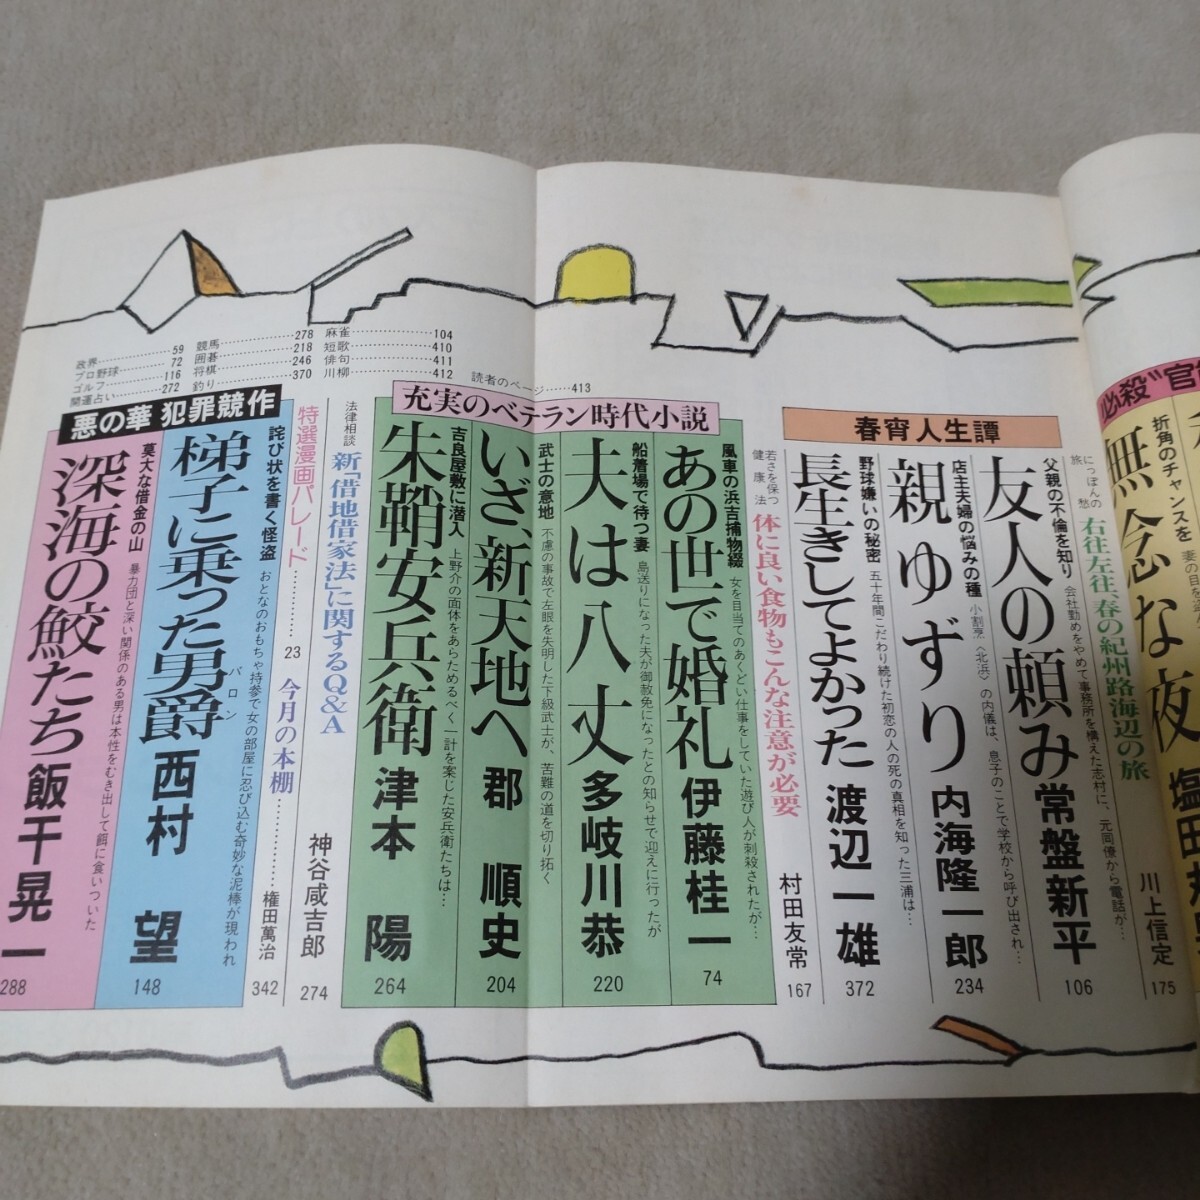 必殺"官
折角のチャンスを
無念な夜
塩田
にっぽんの旅愁
右往左往、春の紀州路海辺の旅
川上信定
175
春宵人生譚
父親の不倫を知り
会社勤めをやめて事務所を構えた志村に、元同僚から電話が…
友人の頼み
常盤新平
106
店主夫婦の悩みの種
小割烹〈北浜〉の内儀は、息子のことで学校から呼び出され…
親ゆずり
内海隆一郎
234
野球嫌いの秘密
五十年間こだわり続けた初恋の人の死の真相を知った三浦は…
長生きしてよかった
渡辺一雄
372
若さを保つ健康法
体に良い食物もこんな注意が必要
村田友常
167
充実のベテラン時代小説
風車の浜吉捕物綴
女を目当てのあくどい仕事をしていた遊び人が刺殺されたが…
あの世で婚礼
伊藤桂一
74
船着場で待つ妻
島送りになった夫が御赦免になったとの知らせで迎えに行ったが
夫は八丈
多岐川恭
220
武士の意地
不慮の事故で左眼を失明した下級武士が、苦難の道を切り拓く
いざ、新天地へ
郡順史
204
吉良屋敷に潜入
上野介の面体をあらためるべく一計を案じた安兵衛たちは…
朱鞘安兵衛
津本陽
264
法律相談
新「借地借家法」に関するQ&A
神谷咸吉郎
274
特選漫画パレード……………23
今月の本棚……………権田萬治
342
悪の華 犯罪競作
詫び状を書く怪盗
おとなのおもちゃ持参で女の部屋に忍び込む奇妙な泥棒が現われ
梯子に乗った男爵
バロン
西村望
148
莫大な借金の山
暴力団と深い関係のある男は本性をむき出して餌に食いついた
深海の鮫たち
飯干晃一
288
政界……………59
プロ野球……………72
ゴルフ……………116
開運占い……………272
競馬……………278
囲碁……………218
将棋……………246
釣り……………370
麻雀……………104
短歌……………410
俳句……………411
川柳……………412
読者のページ……413